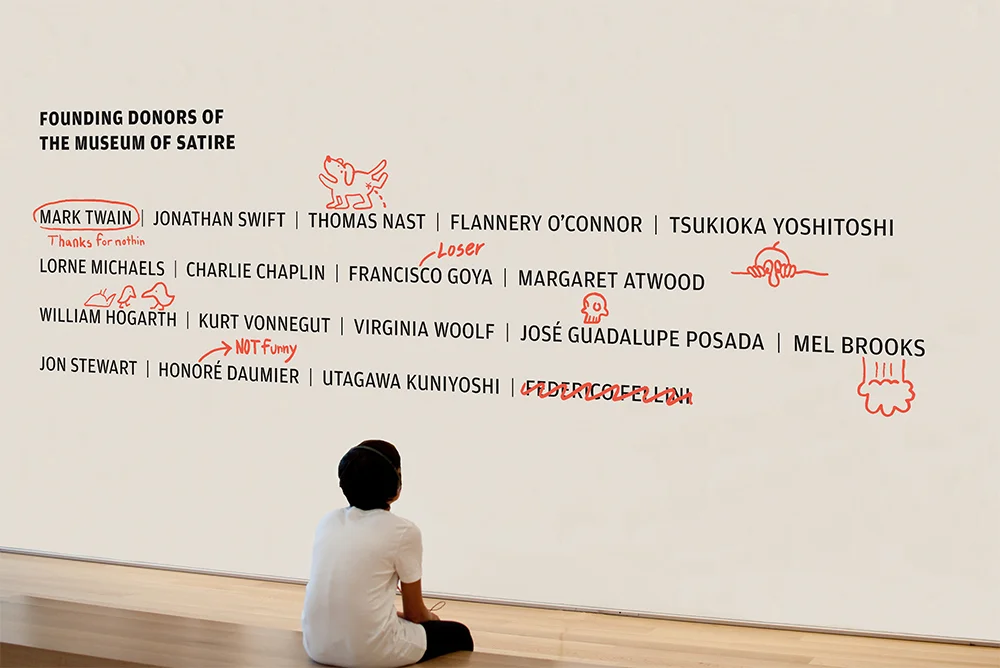 FOUNDING DONORS OF
THE MUSEUM OF SATIRE
MARK TWAIN | JONATHAN SWIFT | THOMAS NAST | FLANNERY O’CONNOR | TSUKIOKA YOSHITOSHI
Thanks for nothin
Loser
LORNE MICHAELS | CHARLIE CHAPLIN | FRANCISCO GOYA | MARGARET ATWOOD
WILLIAM HOGARTH | KURT VONNEGUT | VIRGINIA WOOLF | JOSÉ GUADALUPE POSADA | MEL BROOKS
NOT funny
JON STEWART | HONORÉ DAUMIER | UTAGAWA KUNIYOSHI | FEDERICO FELLINI